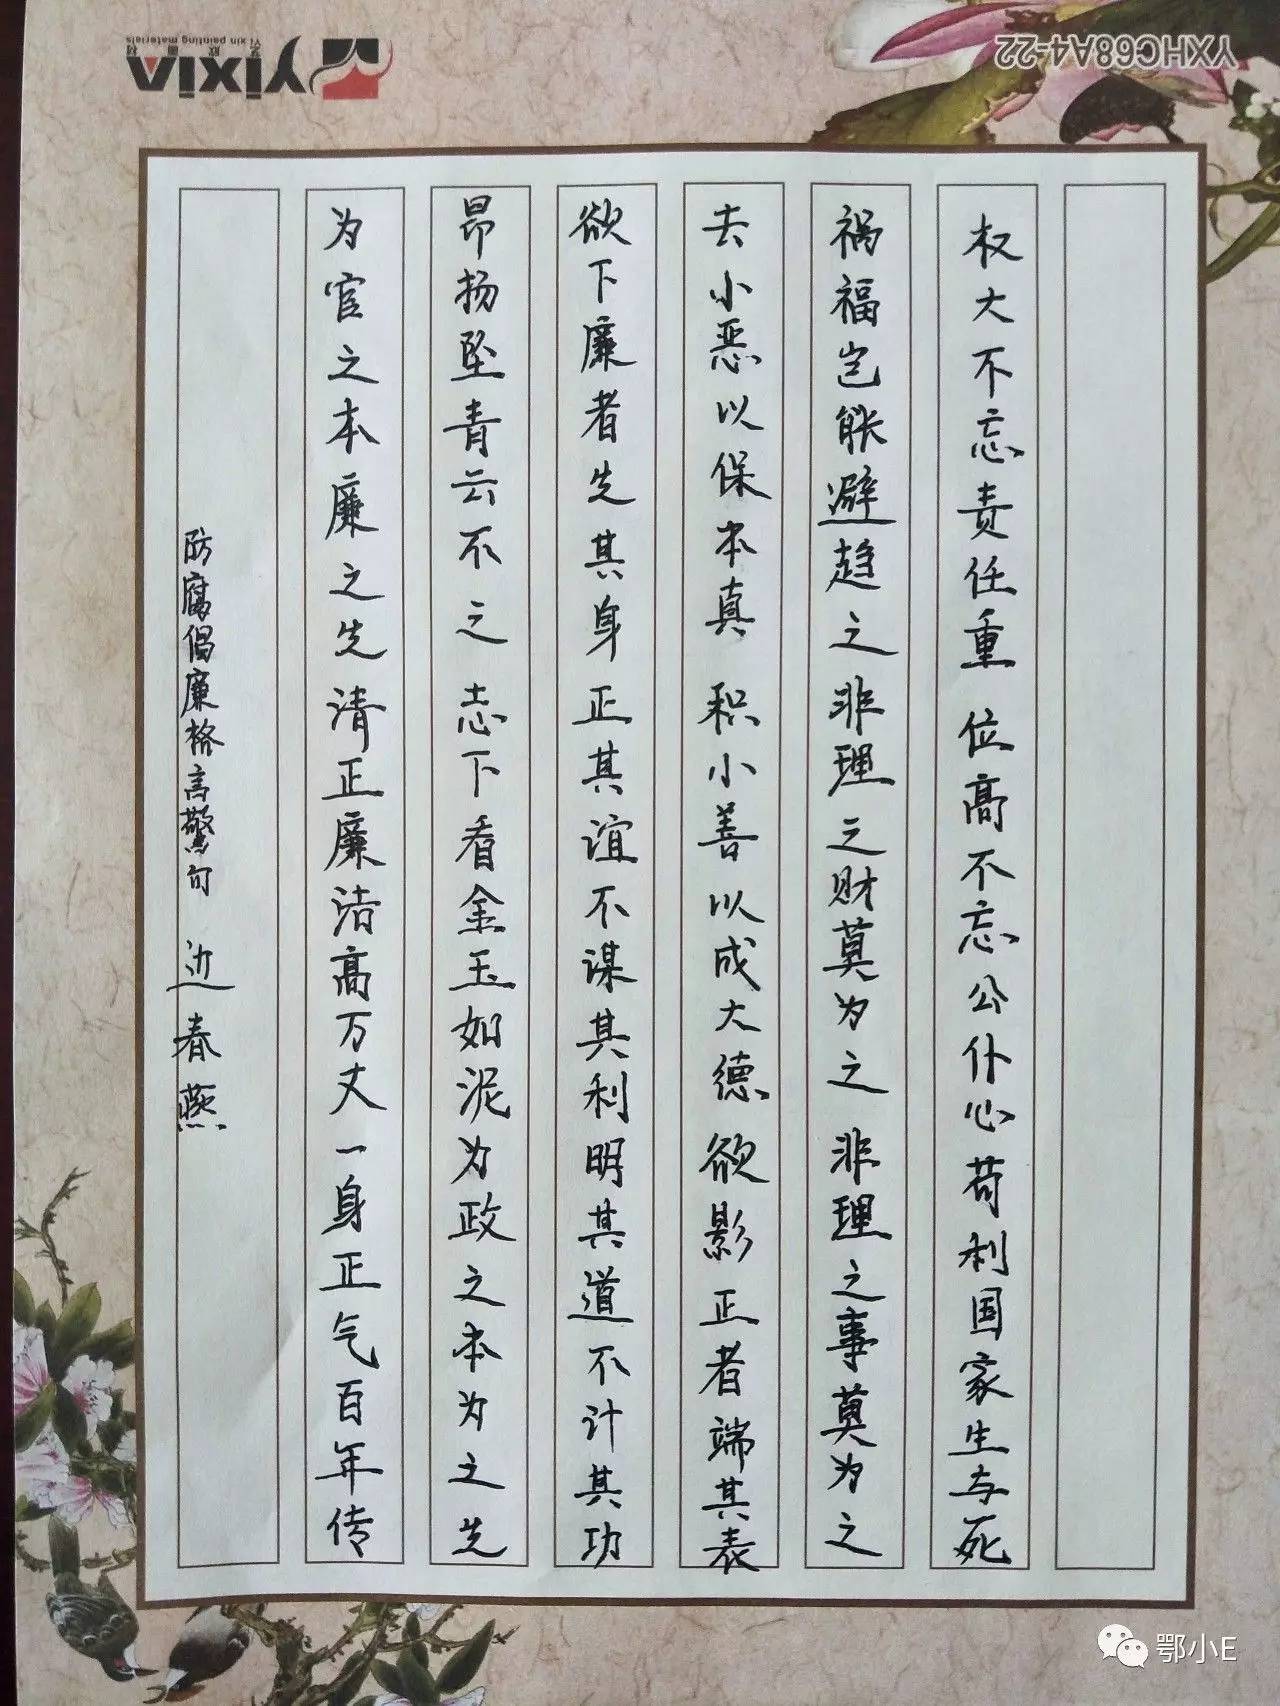 YXHC68A4-22
Yi xin painting materials
权大不忘责任重 位高不忘公仆心苟利国家生与死
祸福岂能避趋之非理之财莫为之 非理之事莫为之
去小恶以保本真 积小善以成大德 欲影正者端其表
欲下廉者先其身正其谊不谋其利明其道不计其功
昂扬坠青云不之 志下看金玉如泥为政之本为之先
为官之本廉之先清正廉洁高万丈一身正气百年传
防腐倡廉格言警句 边春燕
鄂小E